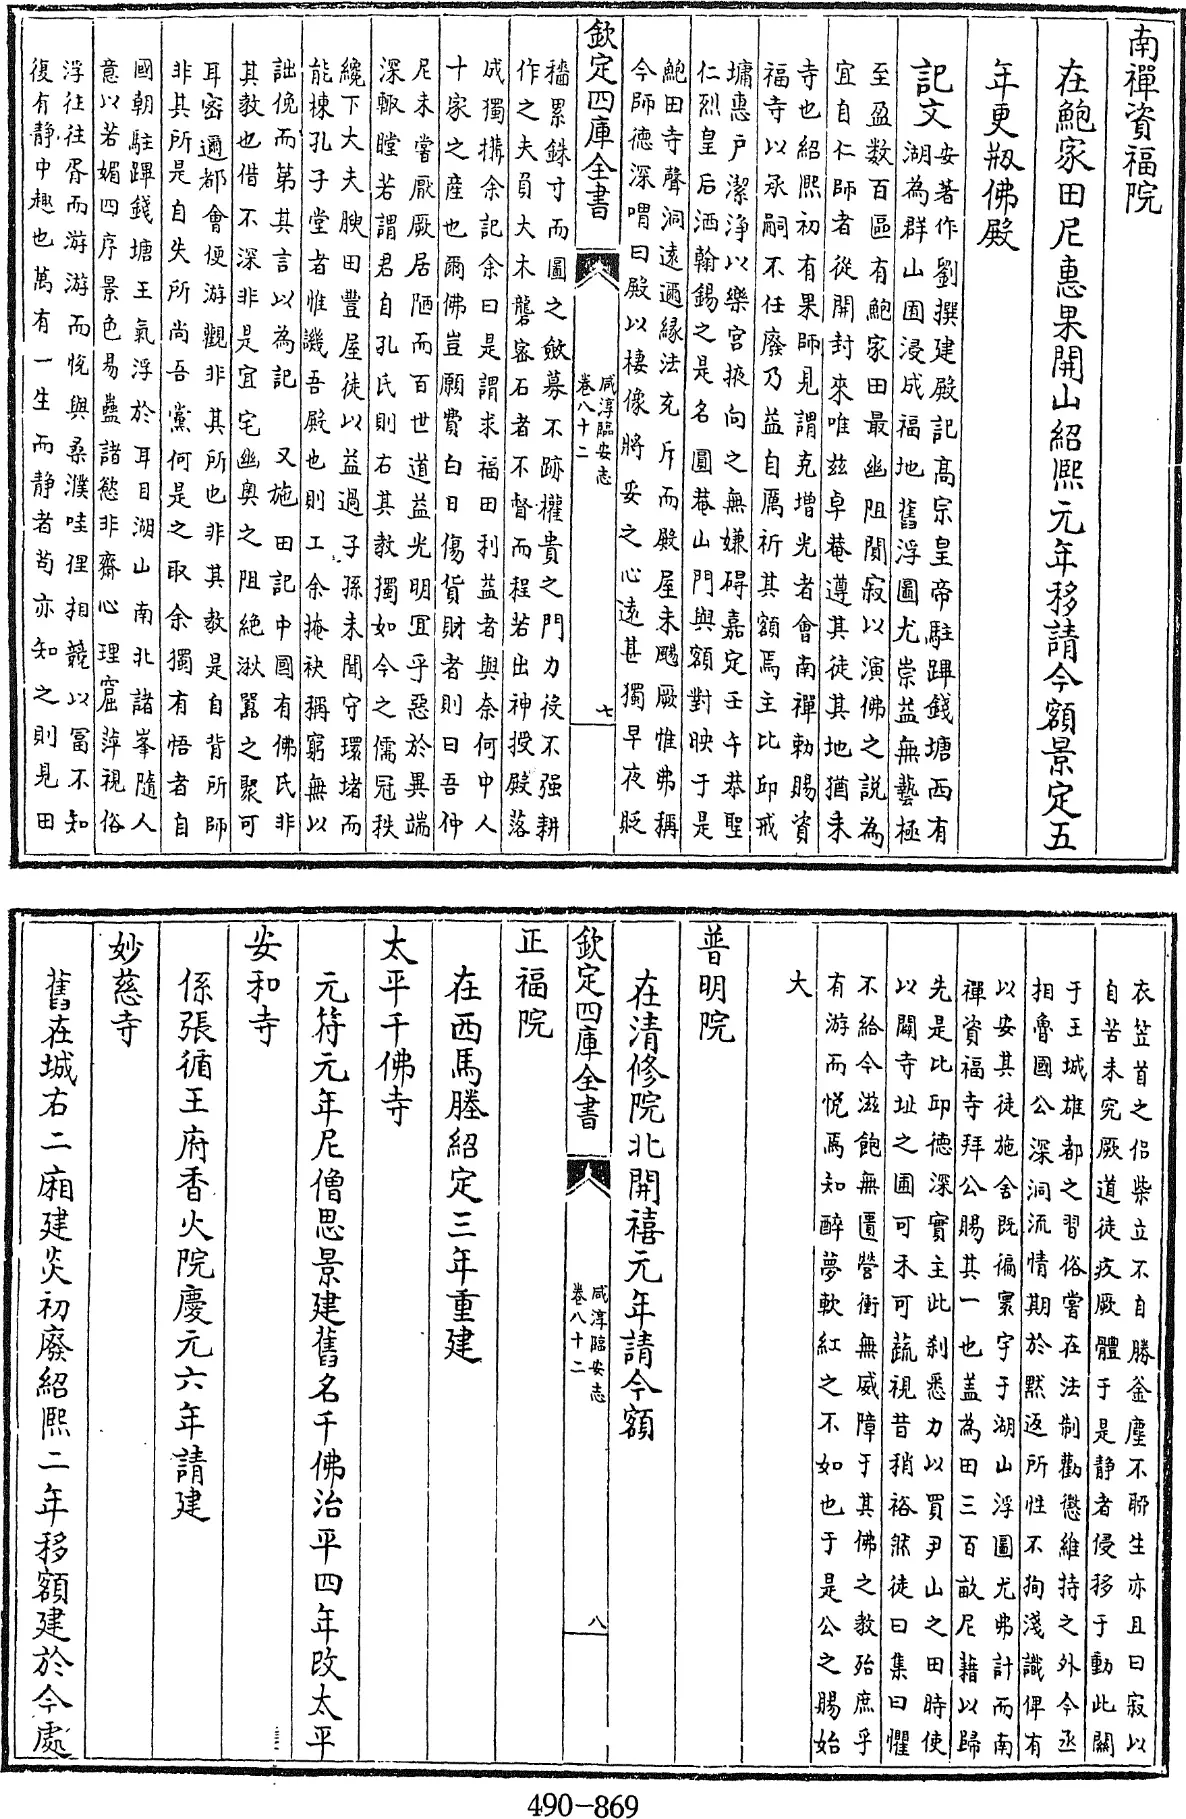 南禪資福院
在鮑家田尼惠果開山紹熙元年移請今額景定五
年更剏佛殿
記文
安著作劉撰建殿記高宗皇帝駐蹕錢塘西有
湖為群山囿浸成福地舊浮圖尤崇益無藝極
至盈数百區有鮑家田最幽阻閴寂以演佛之説為
宜自仁師者從開封來唯兹卓菴遵其徒其地猶未
寺也紹熙初有果師見謂克增光者會南禪勅賜資
福寺以承嗣不任廢乃益自厲祈其額焉主比邱戒
墉惠户潔浄以樂宫掖向之無嫌碍嘉定壬午恭聖
仁烈皇后洒翰錫之是名圓菴山門與額對映于是
鮑田寺聲洞遠邇縁法充斥而殿屋未颺厥惟弗稱
今師德深喟曰殿以棲像將妥之心遠甚獨早夜貶
欽定四庫全書
咸淳臨安志
卷八十二
七
穡累銖寸而圖之斂募不跡權貴之門力役不强耕
作之夫員大木礱密石者不督而程若出神授殿落
成獨携余記余曰是謂求福田利益者與奈何中人
十家之産也爾佛豈願費白日傷貨財者則曰吾仲
尼未嘗厭厥居陋而百世道益光明冝乎惡於異端
深畈瞠若謂君自孔氏則右其教獨如今之儒冠秩
纔下大夫腴田豐屋徒以益過子孫未聞守環堵而
能棟孔子堂者惟譏吾殿也則工余掩袂稱窮無以
詘俛而第其言以為記 又施田記中國有佛氏非
其教也借不深非是宜宅幽奥之阻絶湫嚚之聚可
耳密邇都會便游觀非其所也非其教是自背所師
非其所是自失所尚吾黨何是之取余獨有悟者自
國朝駐蹕錢塘王氣浮於耳目湖山南北諸峯隨人
意以若媚四序景色易蠱諸慾非齋心理窟薄視俗
浮往往胥而游游而悅與桑濮哇俚相競以冨不知
復有静中趣也萬有一生而静者苟亦知之則見田
衣笠首之侣柴立不自勝釜塵不聊生亦且曰寂以
自苦未究厥道徒疚厥體于是静者侵移于動此闗
于王城雄都之習俗嘗在法制勸懲維持之外今丞
相魯國公深洞流情期於黙返所性不狥淺識俾有
以安其徒施舍既徧寰宇于湖山浮圖尤弗計而南
禪資福寺拜公賜其一也盖為田三百畝尼籍以歸
先是比邱德深實主此刹悉力以買尹山之田時使
以闢寺址之圃可禾可蔬視昔稍裕然徒日集日懼
不給今滋飽無匱營衛無威障于其佛之教殆庶乎
有游而悅焉知醉夢軟紅之不如也于是公之賜始
大
普明院
在清修院北開禧元年請今額
欽定四庫全書
咸淳臨安志
卷八十二
八
正福院
在西馬塍紹定三年重建
太平千佛寺
元符元年尼僧思景建舊名千佛治平四年改太平
安和寺
係張循王府香火院慶元六年請建
妙慈寺
舊在城右二廂建炎初廢紹熙二年移額建於今處
490-869